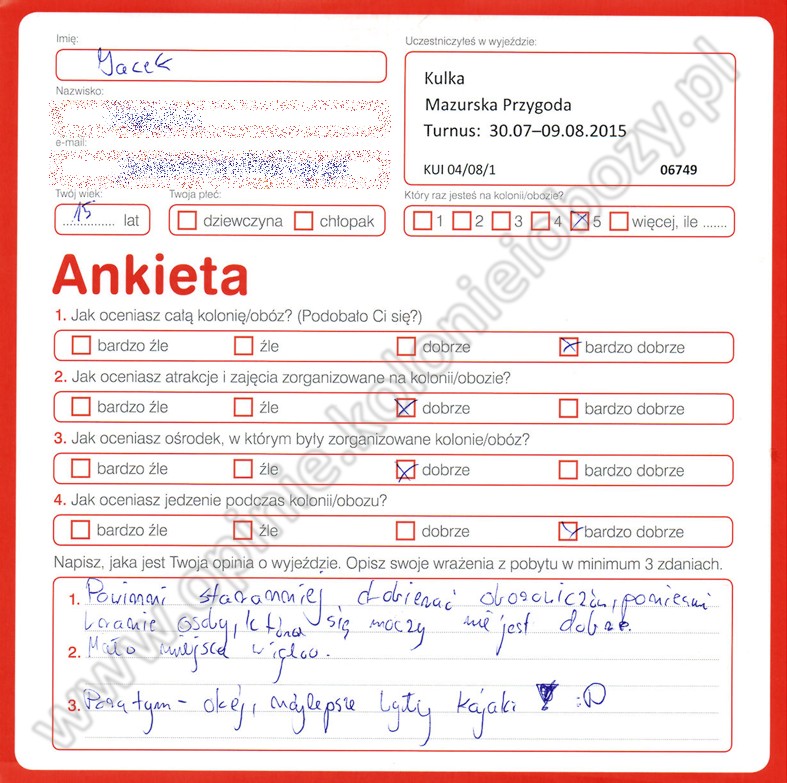 Imię:
Jacek
Nazwisko:
e-mail:
Twój wiek:
15 lat
Twoja płeć:
dziewczyna chłopak
Uczestniczyłeś w wyjeździe:
Kulka
Mazurska Przygoda
Turnus: 30.07–09.08.2015
KUI 04/08/1 06749
Który raz jesteś na kolonii/obozie?
1 2 3 4 5 więcej, ile .......
Ankieta
1. Jak oceniasz całą kolonię/obóz? (Podobało Ci się?)
bardzo źle źle dobrze bardzo dobrze
2. Jak oceniasz atrakcje i zajęcia zorganizowane na kolonii/obozie?
bardzo źle źle dobrze bardzo dobrze
3. Jak oceniasz ośrodek, w którym były zorganizowane kolonie/obóz?
bardzo źle źle dobrze bardzo dobrze
4. Jak oceniasz jedzenie podczas kolonii/obozu?
bardzo źle źle dobrze bardzo dobrze
Napisz, jaka jest Twoja opinia o wyjeździe. Opisz swoje wrażenia z pobytu w minimum 3 zdaniach.
1. Powinni staranniej dobierać obozowiczów, poniewarz
branie osoby, która się moczy nie jest dobre.
2. Mało miejsca w igloo.
3. Pozatym – okej, najlepsze były kajaki ! :D
www.opinie.kolonieiobozy.pl